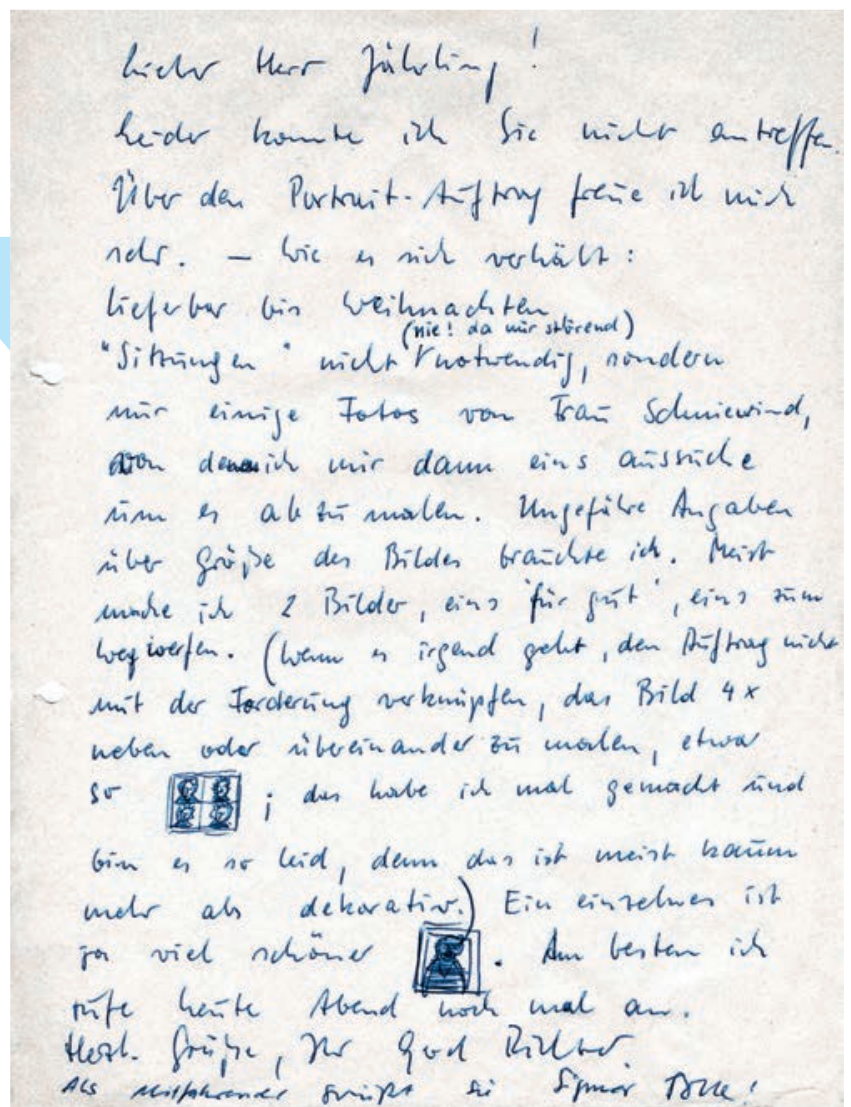 Lieber Herr Jährling!
Leider konnte ich Sie nicht antreffen.
Über den Portrait-Auftrag freue ich mich
sehr. — Wie es sich verhält:
lieferbar bis Weihnachten
(nie! da nur störend)
"Sitzungen" nicht notwendig, sondern
nur einige Fotos von Frau Schniewind,
von denen ich mir dann eins aussuche
um es abzumalen. Ungefähre Angaben
über Größe des Bildes brauchte ich. Meist
mache ich 2 Bilder, eins 'für gut', eins zum
wegwerfen. (Wenn es irgend geht, den Auftrag nicht
mit der Forderung verknüpfen, das Bild 4x
neben oder übereinander zu malen, etwa
so ; das habe ich mal gemacht und
bin es so leid, denn das ist meist kaum
mehr als dekorativ.) Ein einzelnes ist
ja viel schöner . Am besten ich
rufe heute Abend noch mal an.
Herzl. Grüße, Ihr Gerd Richter
Als Mitfahrender grüßt Sie Sigmar Polke!